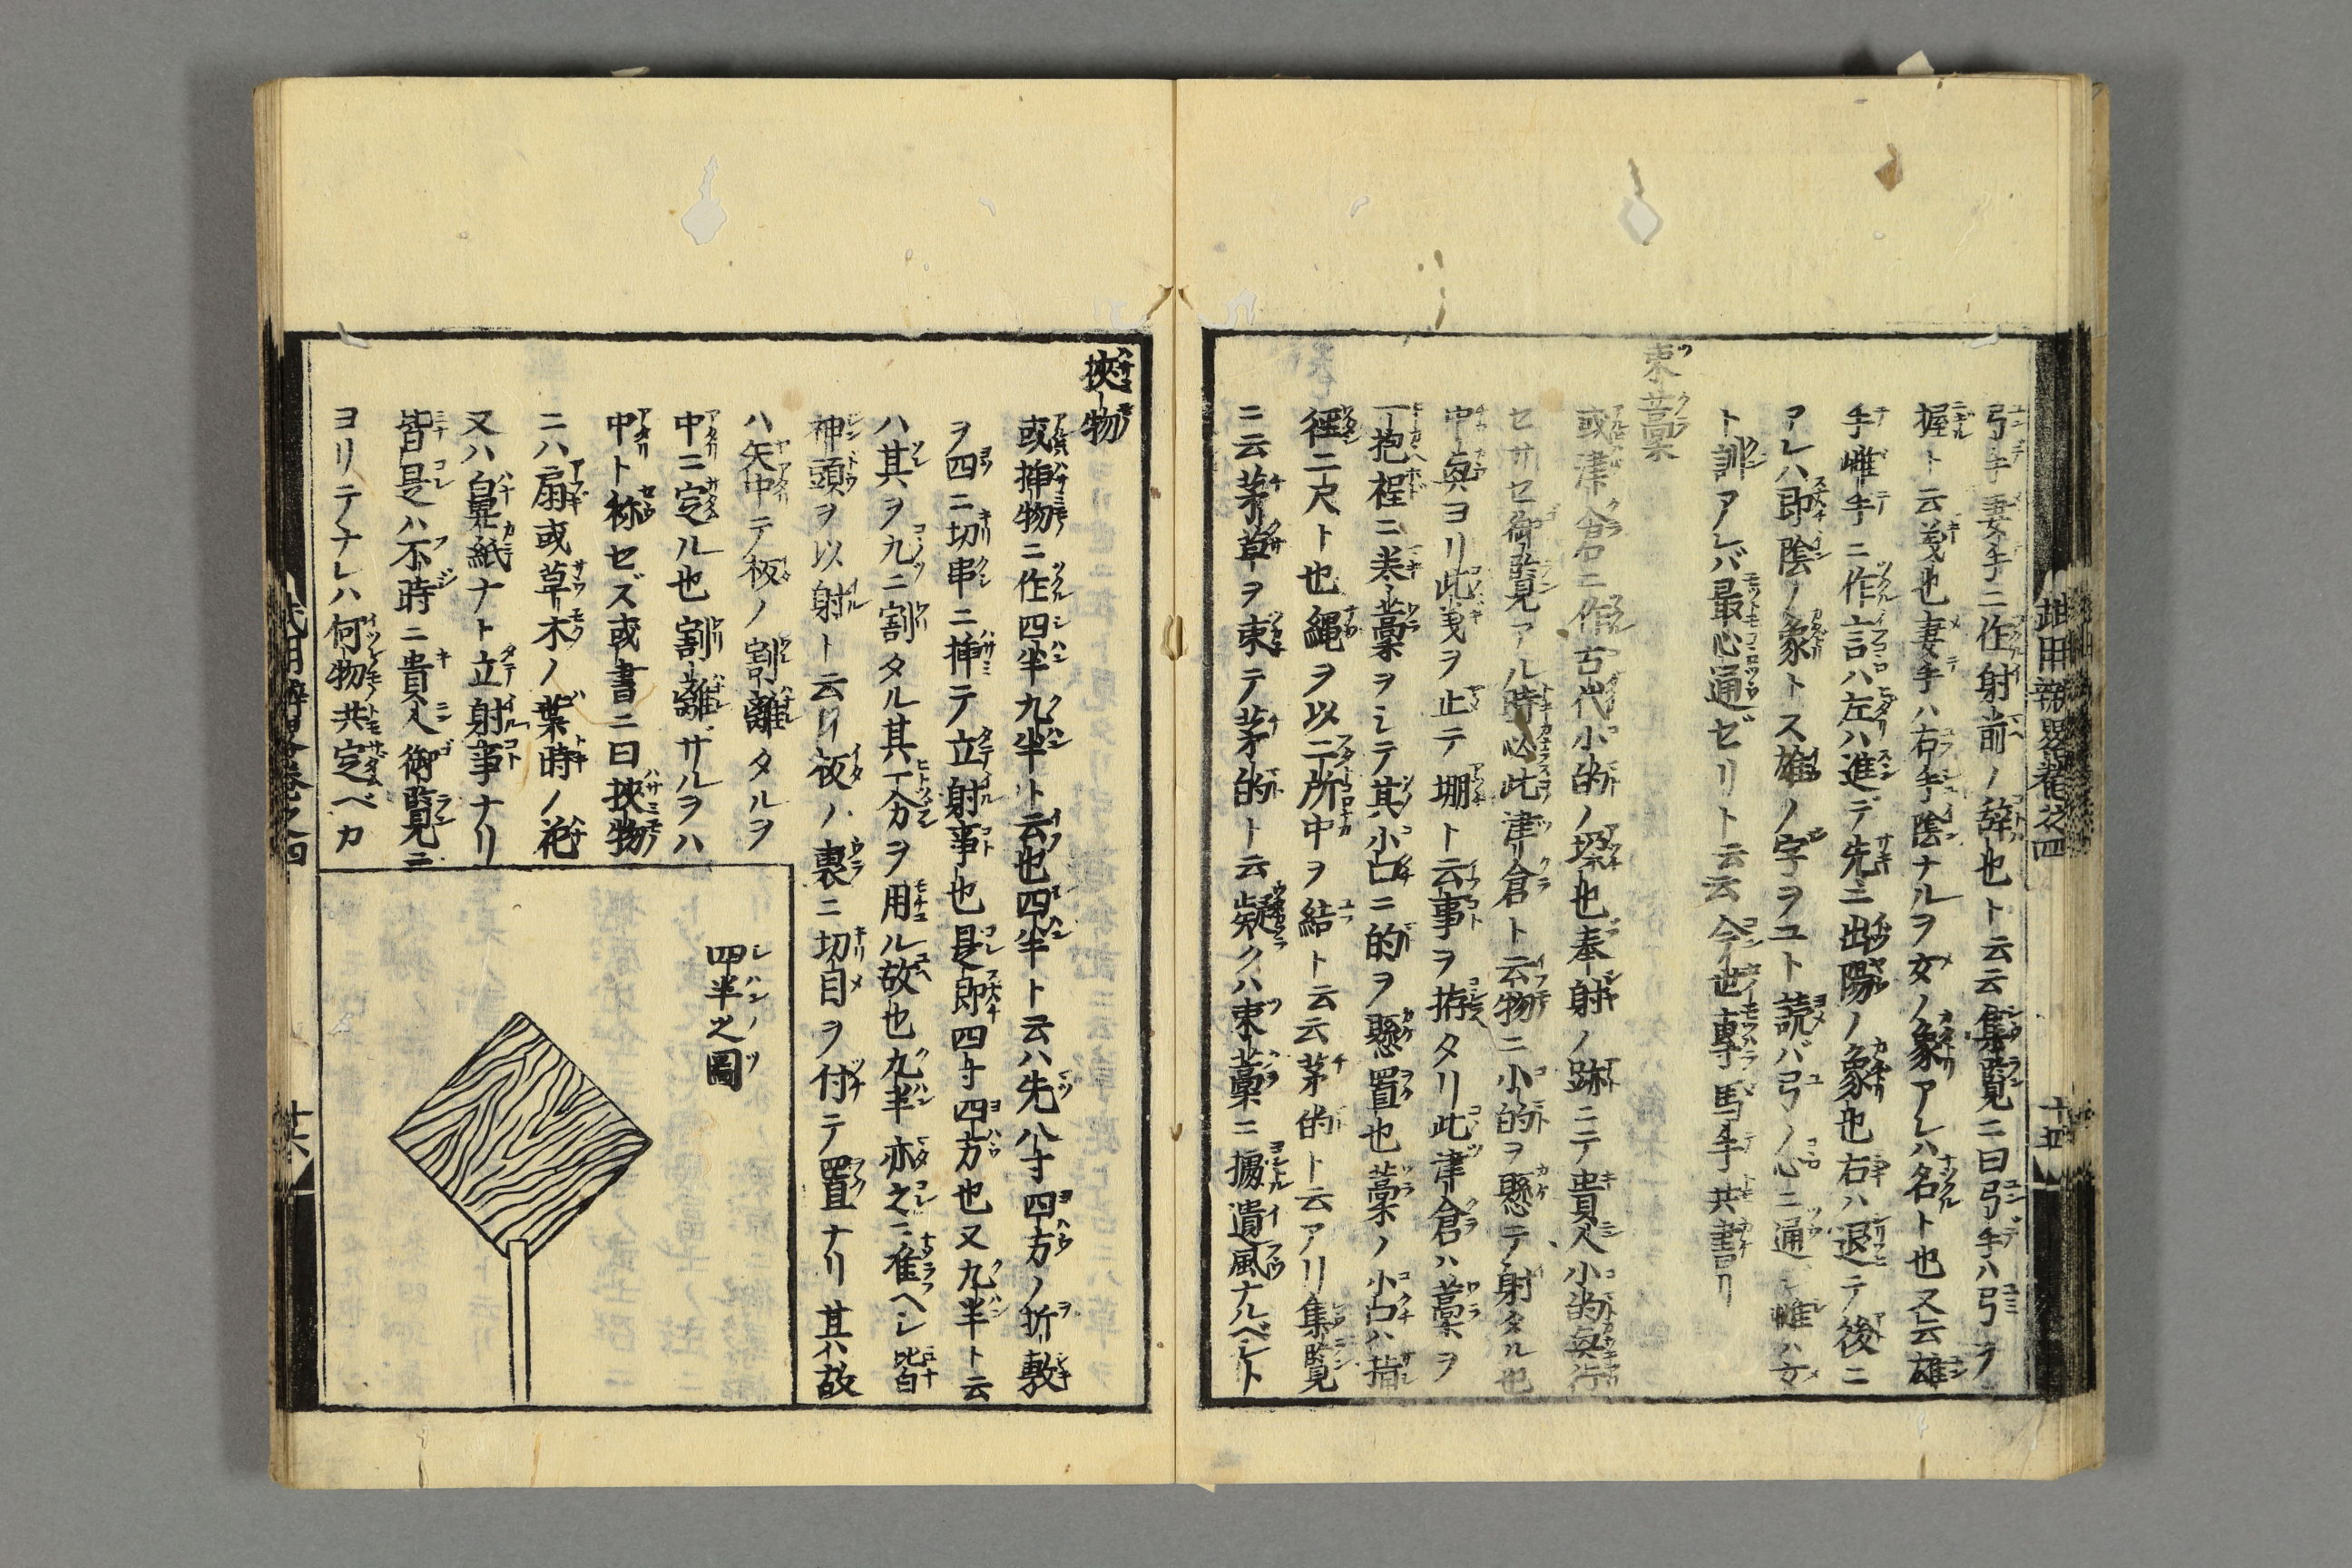 弓手妻手ニ作射前ノ辞也ト云云集覧ニ曰弓手ハ弓ヲ
握ト云義也妻手ハ右手陰ナルヲ女ノ象アレハ名ト也又云雄
手雌手ニ作言ハ左ハ進デ先ニ出陽ノ象也右ハ退テ後ニ
アレハ即陰ノ象トス雄ノ字ヲユト読バ弓ノ心ニ通シ雌ハ女
ト訓アレバ最心通ゼリト云云今世專馬手共書リ
束藁
或津倉ニ作古代小的ノ垜也奉射ノ跡ニテ貴人小的興行
セサセ御覧アル時必此津倉ト云物ニ小的ヲ懸テ射タル也
中興ヨリ此義ヲ止テ堋ト云事ヲ拵タリ此津倉ハ藁ヲ
一抱程ニ巻藁ヲシテ其小口ニ的ヲ懸置也藁ノ小口ハ指
径二尺ト也縄ヲ以二所中ヲ結ト云云茅的ト云アリ集覧
ニ云茅草ヲ束テ茅的ト云疑クハ束藁ニ據遺風ナルベシト
挾物
或挿物ニ作四半九半ト云也四半ト云ハ先八寸四方ノ折敷
ヲ四ニ切串ニ挿テ立射事也是即四寸四方也又九半ト云
ハ其ヲ九ニ割タル其一分ヲ用ル故也九半亦之ニ准ヘシ皆
神頭ヲ以射ト云リ板ノ裏ニ切目ヲ付テ置ナリ其ハ故
ハ矢中テ板ノ割離タルヲ
中ニ定ル也割離ザルヲハ
中ト称セズ或書ニ曰挾物
ニハ扇或草木ノ葉時ノ花
又ハ鼻紙ナト立射事ナリ
皆是ハ不時ニ貴人御覧ニ
ヨリテナレハ何物共定ベカ
四半之圖
十六